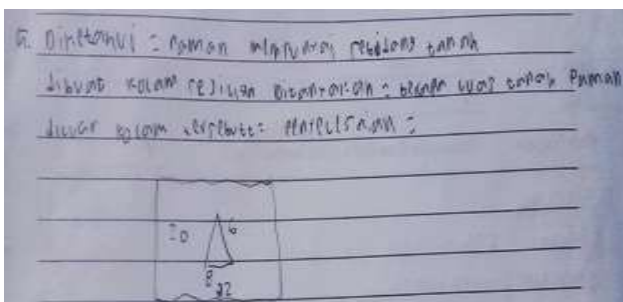 Diketahui : Paman mempunyai sebidang tanah
dibuat kolam Ditanyakan : berapa luas tanah Paman
diluar kolam tersebut : Penyelesaian :
20 6
8
22